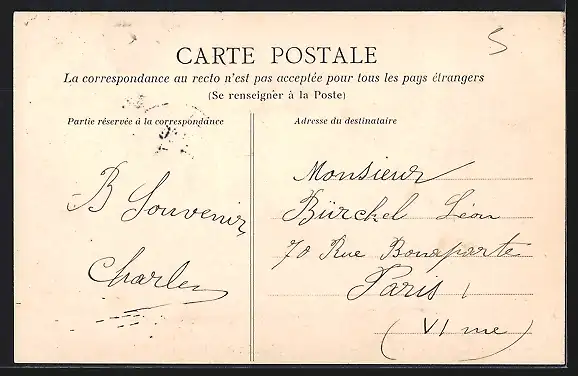 CARTE POSTALE
La correspondance au recto n'est pas acceptée pour tous les pays étrangers
(Se renseigner à la Poste)
Partie réservée à la correspondance
B Souvenir
Charles
Adresse du destinataire
Monsieur
Bürckel Léon
70 Rue Bonaparte
Paris
(VI me)